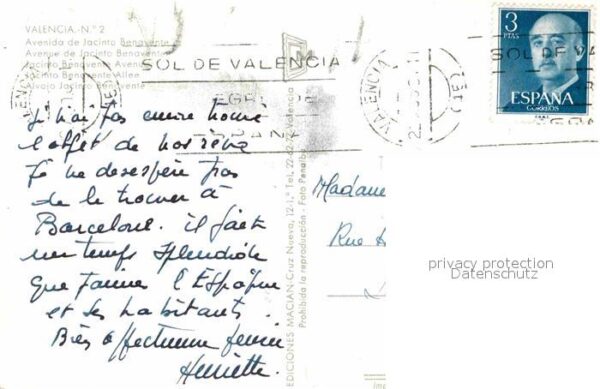 VALENCIA.-N.º 2
Avenida de Jacinto Benavente
Avenue de Jacinto Benavente
Jacinto Benavente Avenue
Jacinto Benavente Allee
SOL DE VALENCIA
VALENCIA
SOL DE VA
3
PTAS
ESPAÑA
CORREOS
Je n'ai pas encore trouvé
l'objet de nos rêves
Je ne désespère pas
de le trouver à
Barcelone. il fait
un temps splendide
que j'aime l'Espagne
et ses habitants.
Bien affectueusement
Henriette.
EDICIONES MACIAN-Cruz Nueva, 12-1.º Tel. 22-62 Valencia
Prohibida la reproducción - Foto Penalba
Madame
Rue
privacy protection
Datenschutz